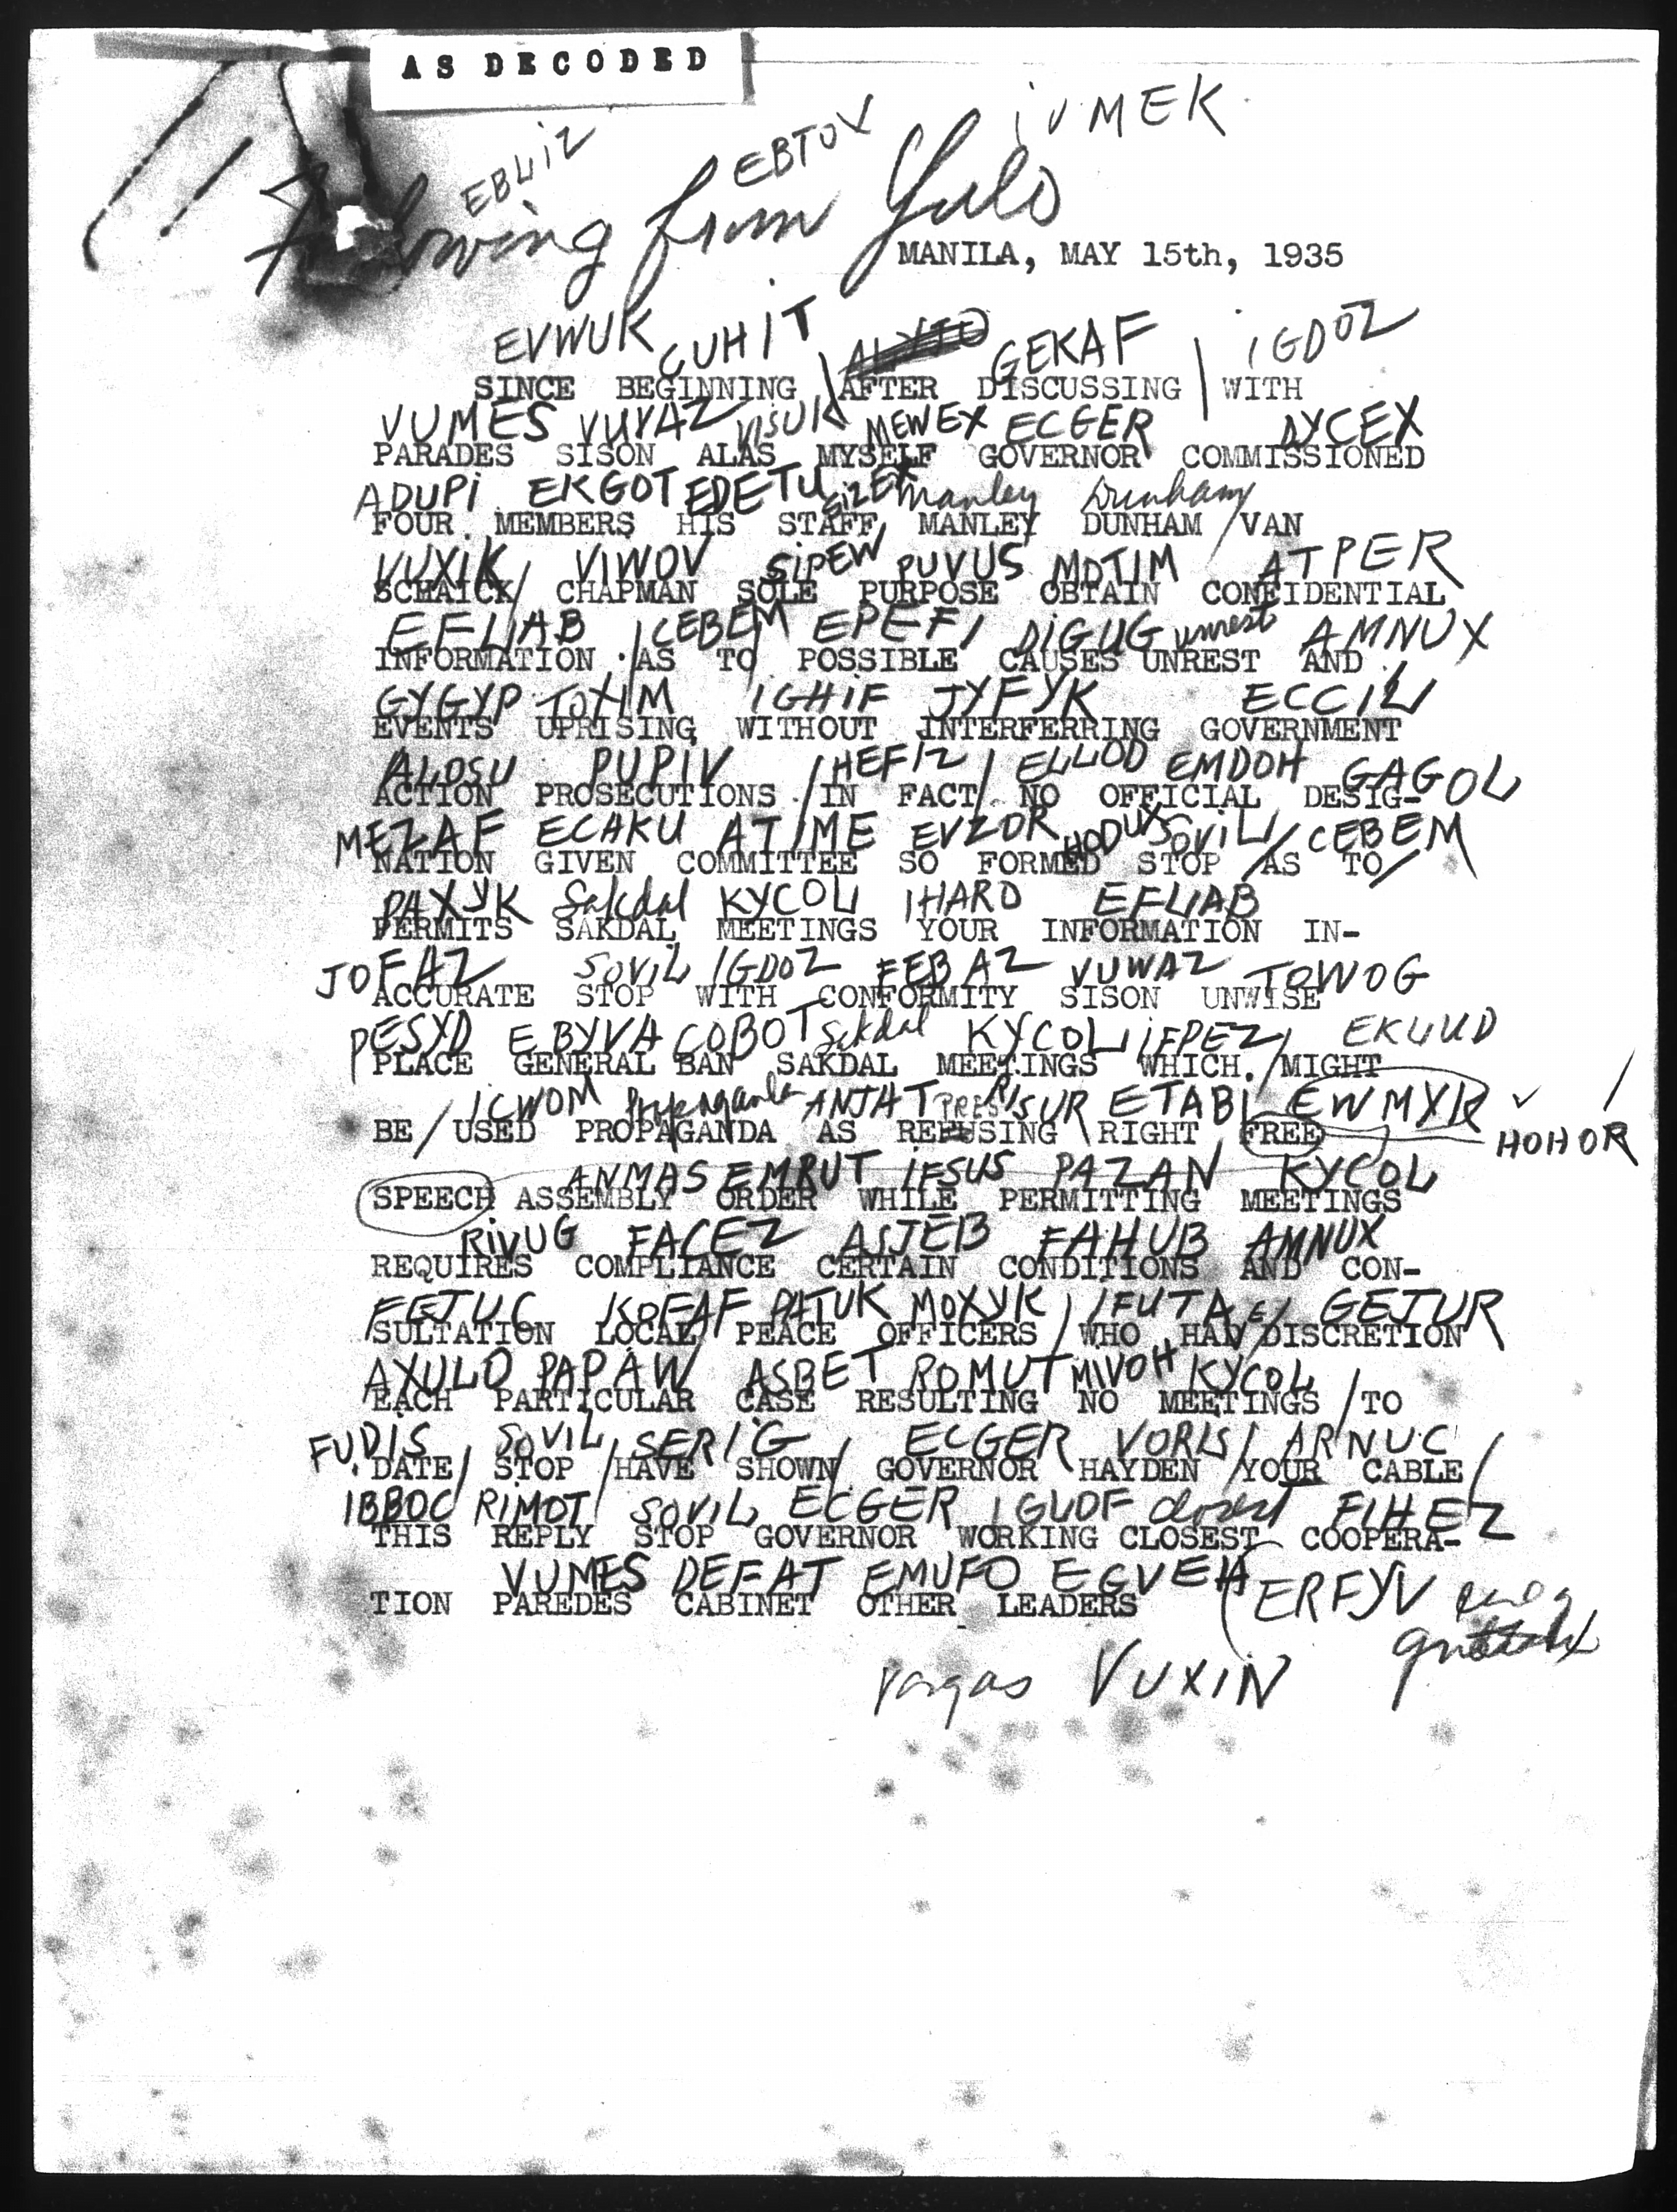 AS DECODED
EBLIZ EBTOX IVMEK
Following from Yulo
MANILA, MAY 15th, 1935
EVWUK CUHIT GEKAF IGDOZ
SINCE BEGINNING AFTER DISCUSSING WITH
VUMES VUVAZ VISUK MEWEX ECGER DYCEX
PARADES SISON ALAS MYSELF GOVERNOR COMMISSIONED
ADUPI EKGOT EDETU SIZEK Manley Dunham
FOUR MEMBERS HIS STAFF MANLEY DUNHAM VAN
VUXIK VIWOV SIPEW PUVUS MOTIM ATPER
SCHAICK CHAPMAN SOLE PURPOSE OBTAIN CONFIDENTIAL
EFLIAB CEBEM EPEFI DIGUG unrest AMNUX
INFORMATION AS TO POSSIBLE CAUSES UNREST AND
GYGYP TOXIM IGHIF JYFYK ECCIL
EVENTS UPRISING WITHOUT INTERFERRING GOVERNMENT
ALOSU PUPIV HEFIZ ELLOD EMDOH GAGOL
ACTION PROSECUTIONS IN FACT NO OFFICIAL DESIG-
MEZAF ECAKU ATIME EVZOR HODUX SOVIL CEBEM
NATION GIVEN COMMITTEE SO FORMED STOP AS TO
PAXYK Sakdal KYCOL IHARO EFLIAB
PERMITS SAKDAL MEETINGS YOUR INFORMATION IN-
JOFAZ SOVIL IGDOZ FEBAZ VUWAZ TOWOG
ACCURATE STOP WITH CONFORMITY SISON UNWISE
PESYD EBYVA COBOT Sakdal KYCOL IFPEZ EKLUD
PLACE GENERAL BAN SAKDAL MEETINGS WHICH MIGHT
ICWOM Propaganda ANJAT RISUR ETABI EWMYK
BE USED PROPAGANDA AS REFUSING RIGHT FREE HOHOR
ANMAS EMRUT IFSUS PAZAN KYCOL
SPEECH ASSEMBLY ORDER WHILE PERMITTING MEETINGS
RIVUG FACEZ ASJEB FAHUB AMNUX
REQUIRES COMPLIANCE CERTAIN CONDITIONS AND CON-
FEJUC KOFAF PATUK MOXYK IFUTA GEJUR
SULTATION LOCAL PEACE OFFICERS WHO HAD DISCRETION
AXULO PAPAW ASBET ROMUT MIVOH KYCOL
EACH PARTICULAR CASE RESULTING NO MEETINGS TO
FUDIS SOVIL SERIG ECGER VORIS ARNUC
DATE STOP HAVE SHOWN GOVERNOR HAYDEN YOUR CABLE
IBBOC RIMOT SOVIL ECGER IGUDF closest FIHEZ
THIS REPLY STOP GOVERNOR WORKING CLOSEST COOPERA-
VUMES DEFAT EMUFO EGVEH ERFYV
TION PAREDES CABINET OTHER LEADERS
Vargas VUXIN